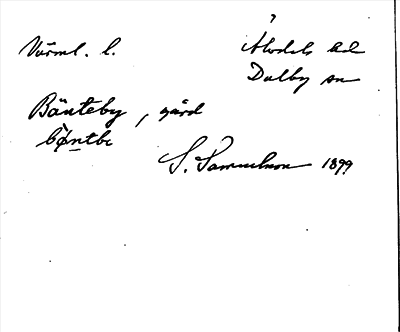 Värml. l.
Älvdals hd
Dalby sn
Bänteby, gård
S. Samuelsson 1899